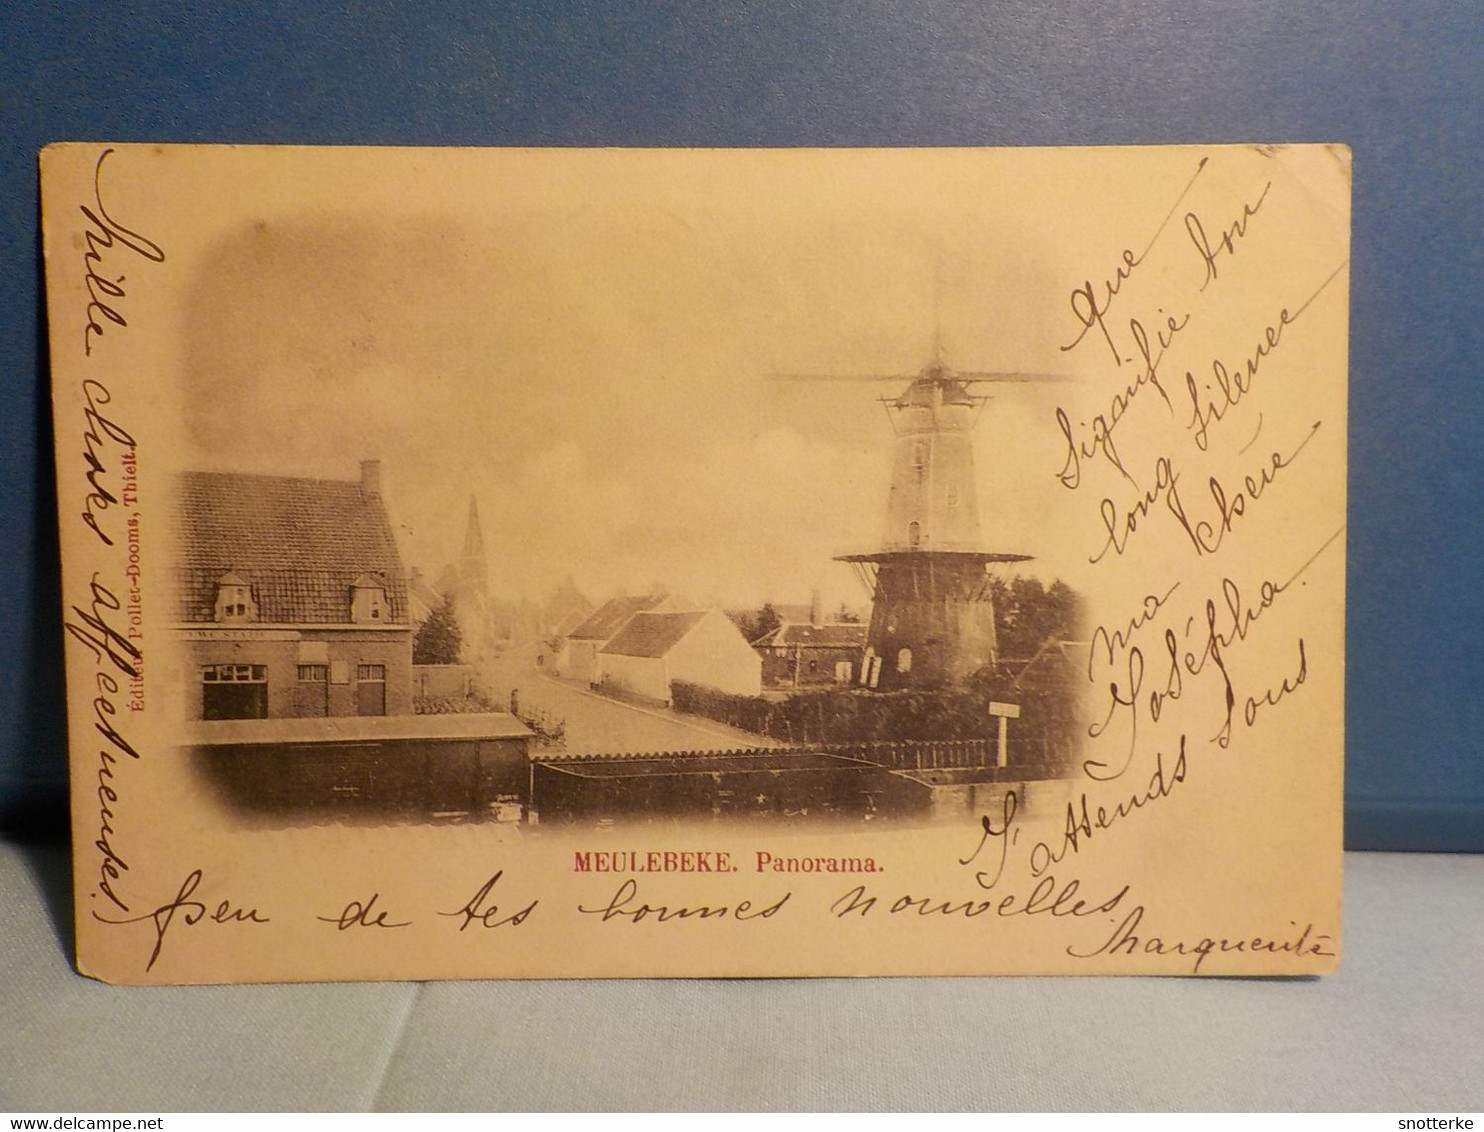 que
signifie ton
long silence
ma chère
Joséphа.
J'attends sous
peu de tes bonnes nouvelles
Marguerite
Mille choses affectueuses!
Éditeur Pollet-Dooms, Thielt.
MEULEBEKE. Panorama.
www.delcampe.net
snotterke